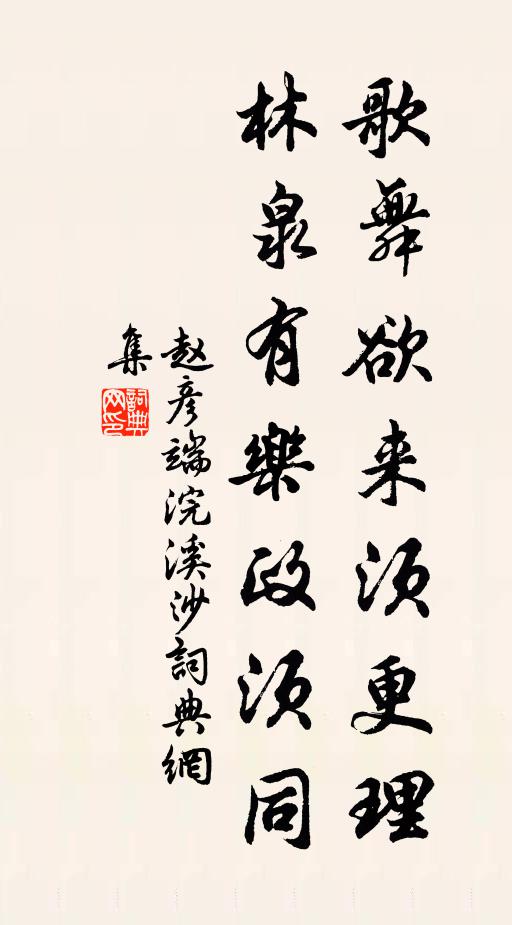 歌舞欲来须更理
林泉有樂政须同
赵彦端浣溪沙詞典網
集
詞典网印